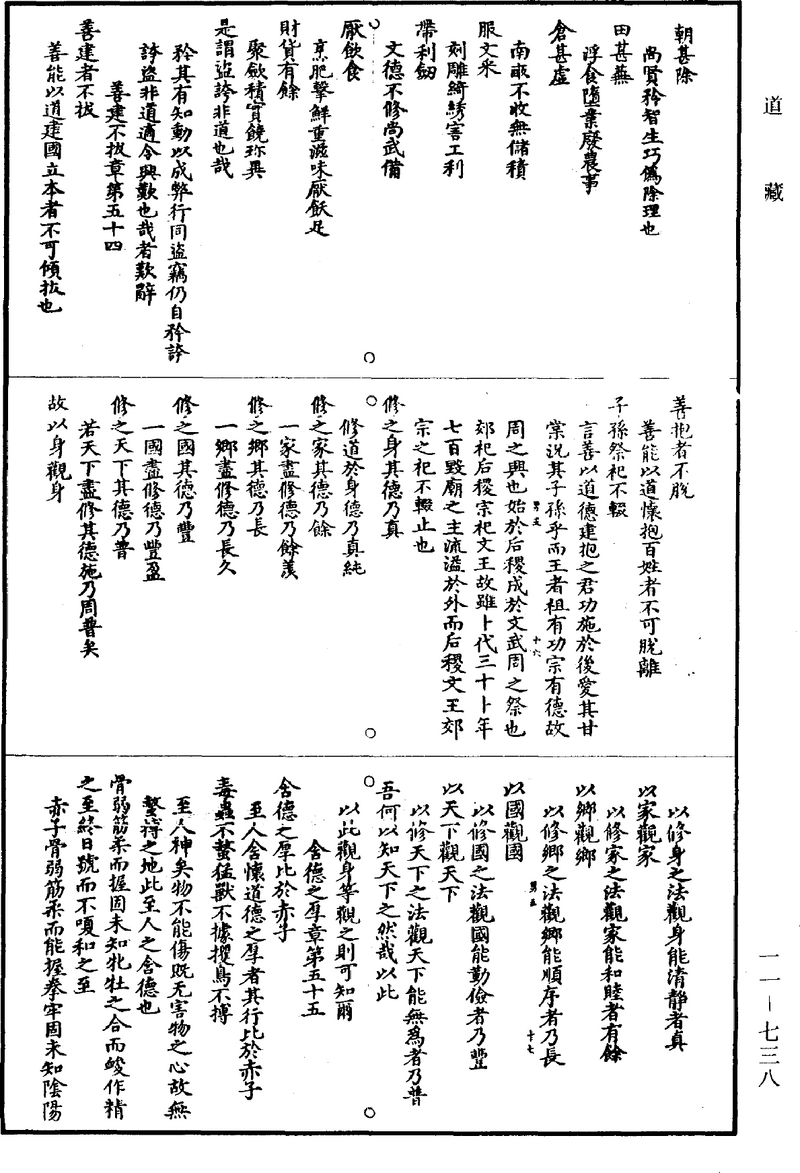 道藏
朝甚除
尚賢矜智生巧偽除理也
田甚蕪
浮食隨業廢農事
倉甚虛
南畝不收無儲積
服文采
刻雕綺綉害工利
帶利劒
文德不修尚武備
厭飲食
烹肥擊鮮重滋味厭飫足
財貨有餘
聚歛積實饒珎異
是謂盜誇非道也哉
矜其有知動以成弊行同盜竊仍自矜誇
誇盜非道適令興歎也哉者歎辭
善建不拔章第五十四
善建者不拔
善能以道建國立本者不可傾拔也
善抱者不脫
善能以道懷抱百姓者不可脫離
子孫祭祀不輟
言善以道德建抱之君功施於後愛其甘
棠況其子孫乎而王者祖有功宗有德故
周之興也始於后稷成於文武周之祭也
郊祀后稷宗祀文王故雖卜代三十卜年
七百毀廟之主流溢於外而后稷文王郊
宗之祀不輟止也
修之身其德乃真
修道於身德乃真純
修之家其德乃餘
一家盡修德乃餘羨
修之鄉其德乃長
一鄉盡修德乃長久
修之國其德乃豐
一國盡修德乃豐盈
修之天下其德乃普
若天下盡修其德施乃周普矣
故以身觀身
以修身之法觀身能清靜者真
以家觀家
以修家之法觀家能和睦者有餘
以鄉觀鄉
以修鄉之法觀鄉能順序者乃長
以國觀國
以修國之法觀國能勤儉者乃豐
以天下觀天下
以修天下之法觀天下能無為者乃普
吾何以知天下之然哉以此
以此觀身等觀之則可知爾
含德之厚章第五十五
含德之厚比於赤子
至人含懷道德之厚者其行比於赤子
毒蟲不螫猛獸不據攫鳥不搏
至人神矣物不能傷既无害物之心故無
螫搏之地此至人之含德也
骨弱筋柔而握固未知牝牡之合而峻作精
之至終日號而不嗄和之至
赤子骨弱筋柔而能握拳牢固未知陰陽
一一－七三八